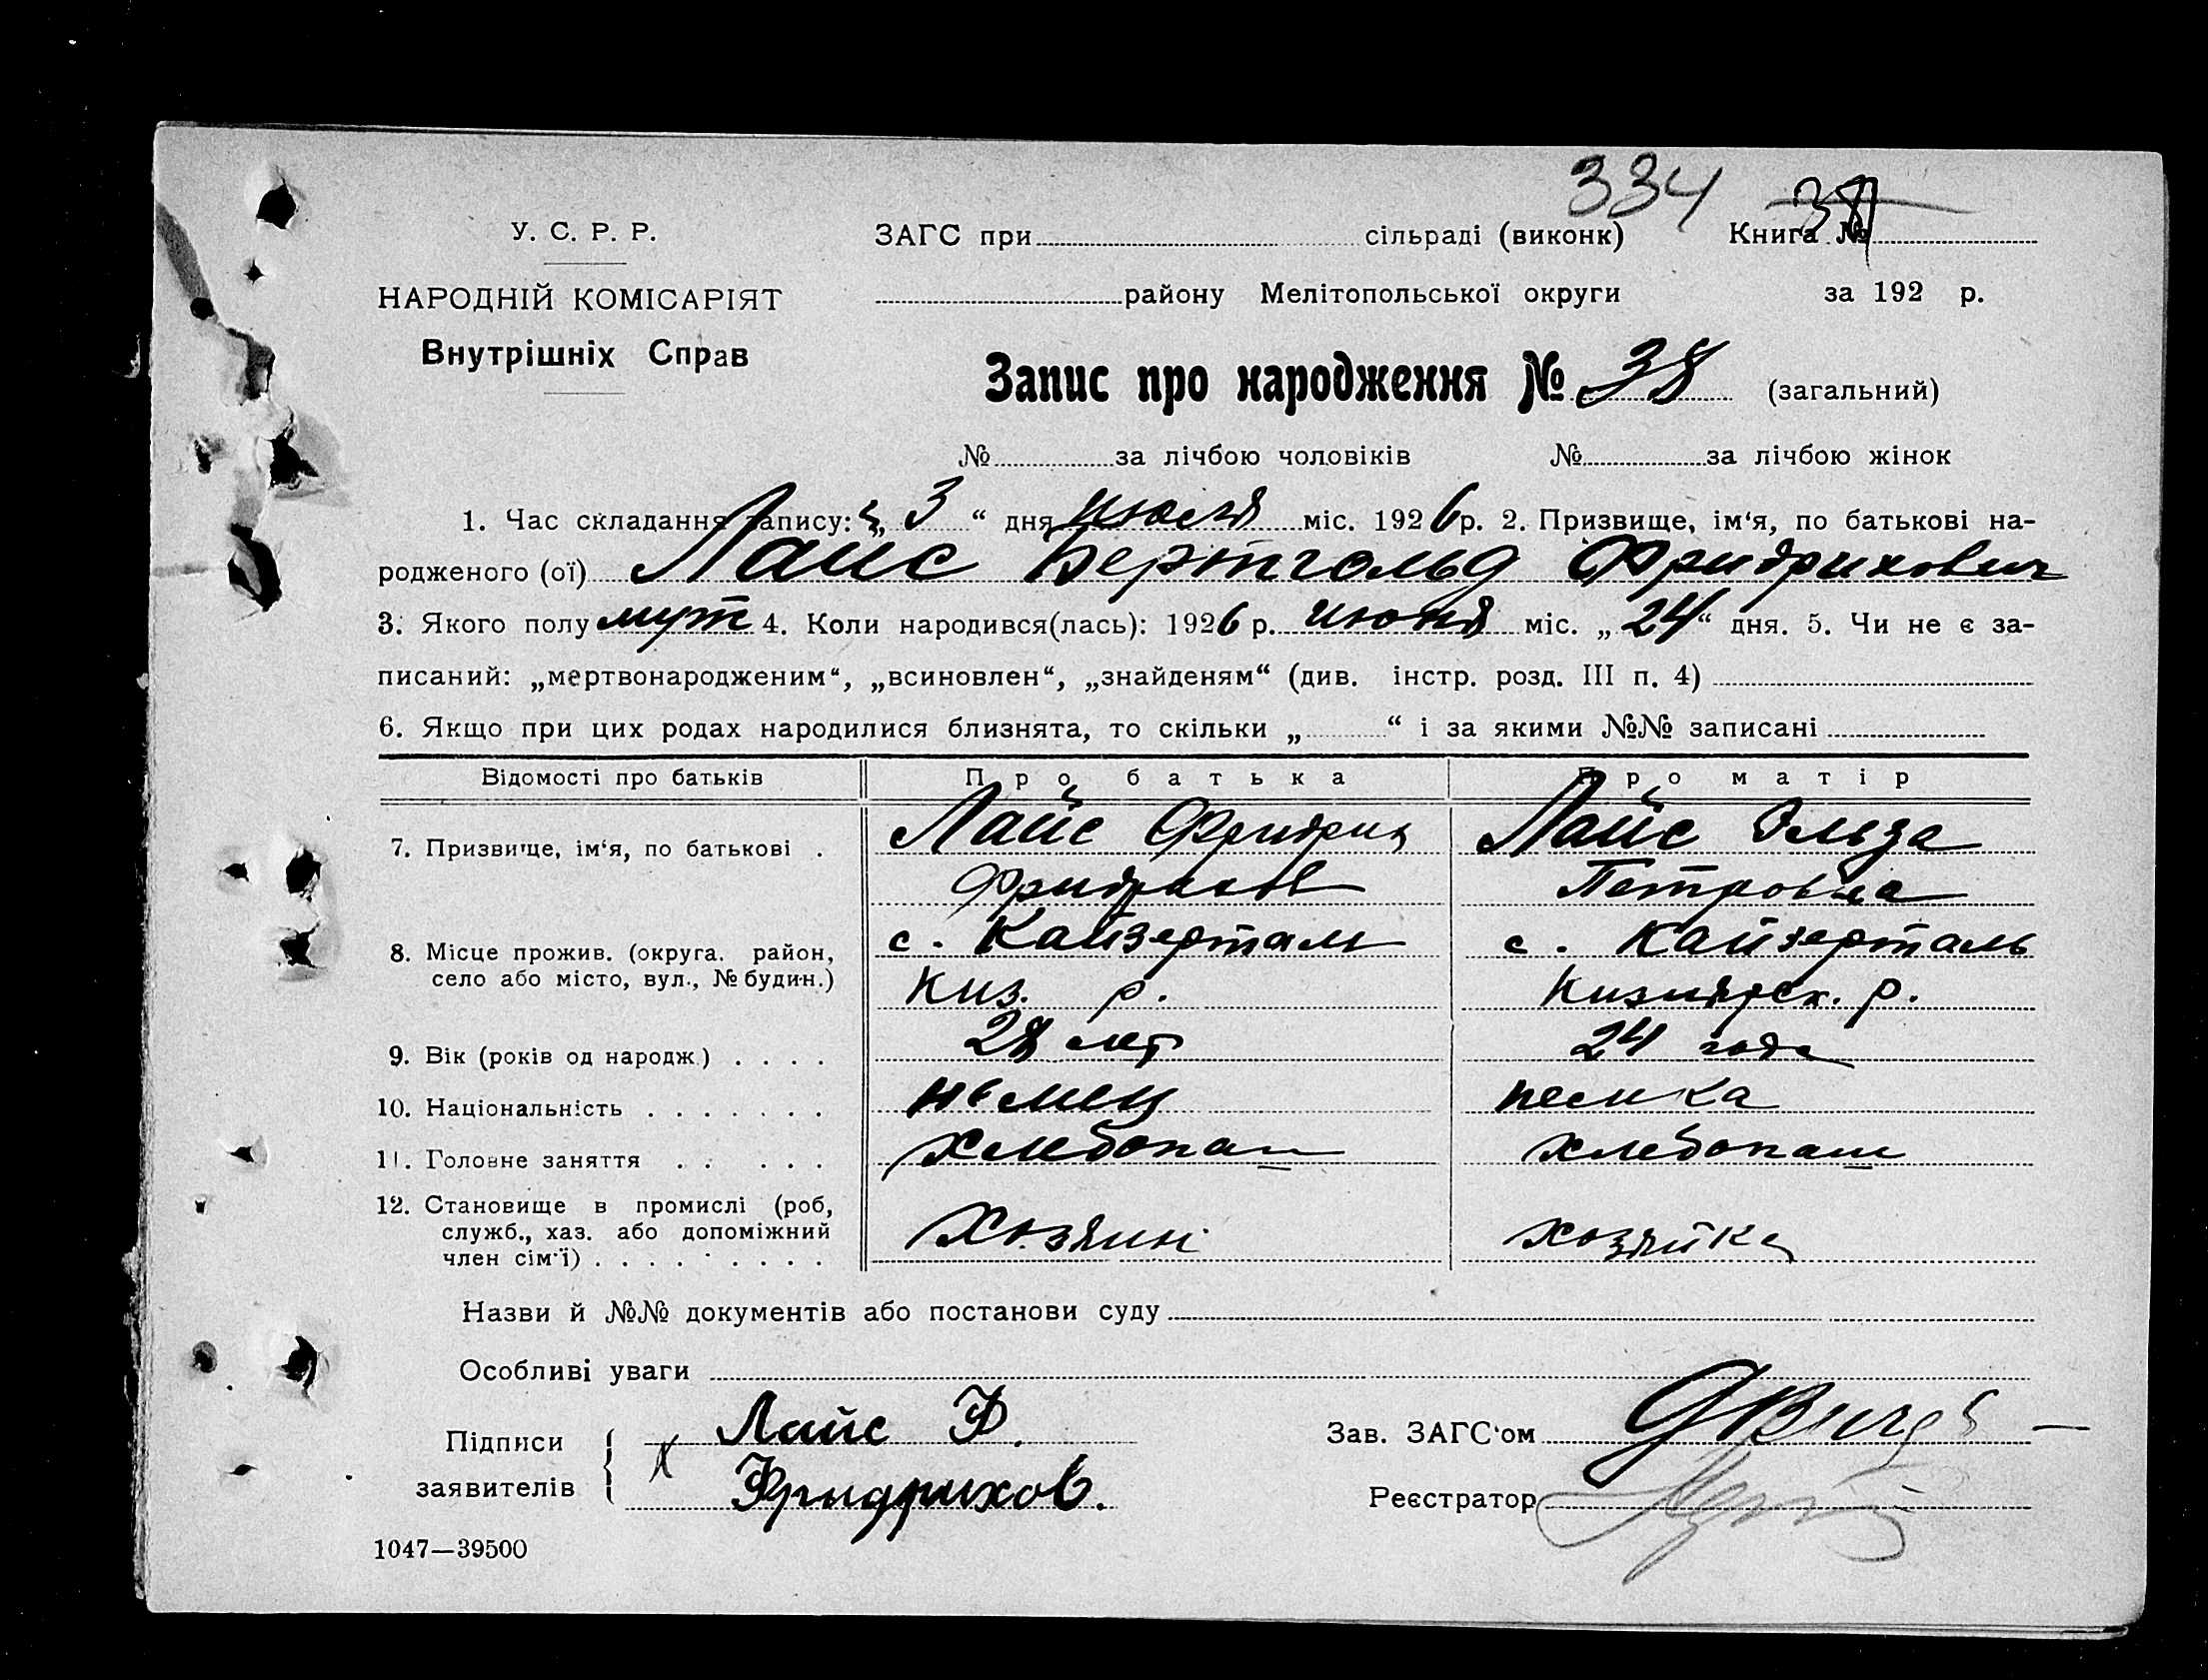 334 38
У. С. Р. Р. ЗАГС при сільраді (виконк) Книга №
НАРОДНІЙ КОМІСАРІЯТ района Мелітопольської округи за 192 р.
Внутрішніх Справ
Запис про народження № 38 (загальний)
№ за лічбою чоловіків № за лічбою жінок
1. Час складання запису: „ 3 “ дня июля міс. 1926 р. 2. Призвище, ім‘я, по батькові на-
родженого (ої) Лайс Бертгольд Фридрихович
3. Якого полу муж 4. Коли народився(лась): 1926 р. июня міс. „ 24 “ дня. 5. Чи не є за-
писаний: „мертвонародженим“, „всиновлен“, „знайденям“ (див. інстр. розд. III п. 4)
6. Якщо при цих родах народилися близнята, то скільки „ “ і за якими №№ записані
Відомості про батьків Про батька Про матір
7. Призвище, ім‘я, по батькові . Лайс Фридрих Лайс Ольга
Фридрихов Петровна
8. Місце прожив. (округа. район, с. Кайзерталь с. Кайзерталь
село або місто, вул., № будин.) Киз. р. Кизиярск. р.
9. Вік (років од народж.) . . . . 28 лет 24 года
10. Національність . . . . . . . немец немка
11. Головне заняття . . . . . хлебопаш хлебопаш
12. Становище в промислі (роб,
служб., хаз. або допоміжний Хозяин хозяйка
член сім‘ї) . . . . . . . .
Назви й №№ документів або постанови суду
Особливі уваги
Підписи Лайс Ф. Зав. ЗАГС‘ом
заявителів Фридрихов. Реєстратор
1047—39500